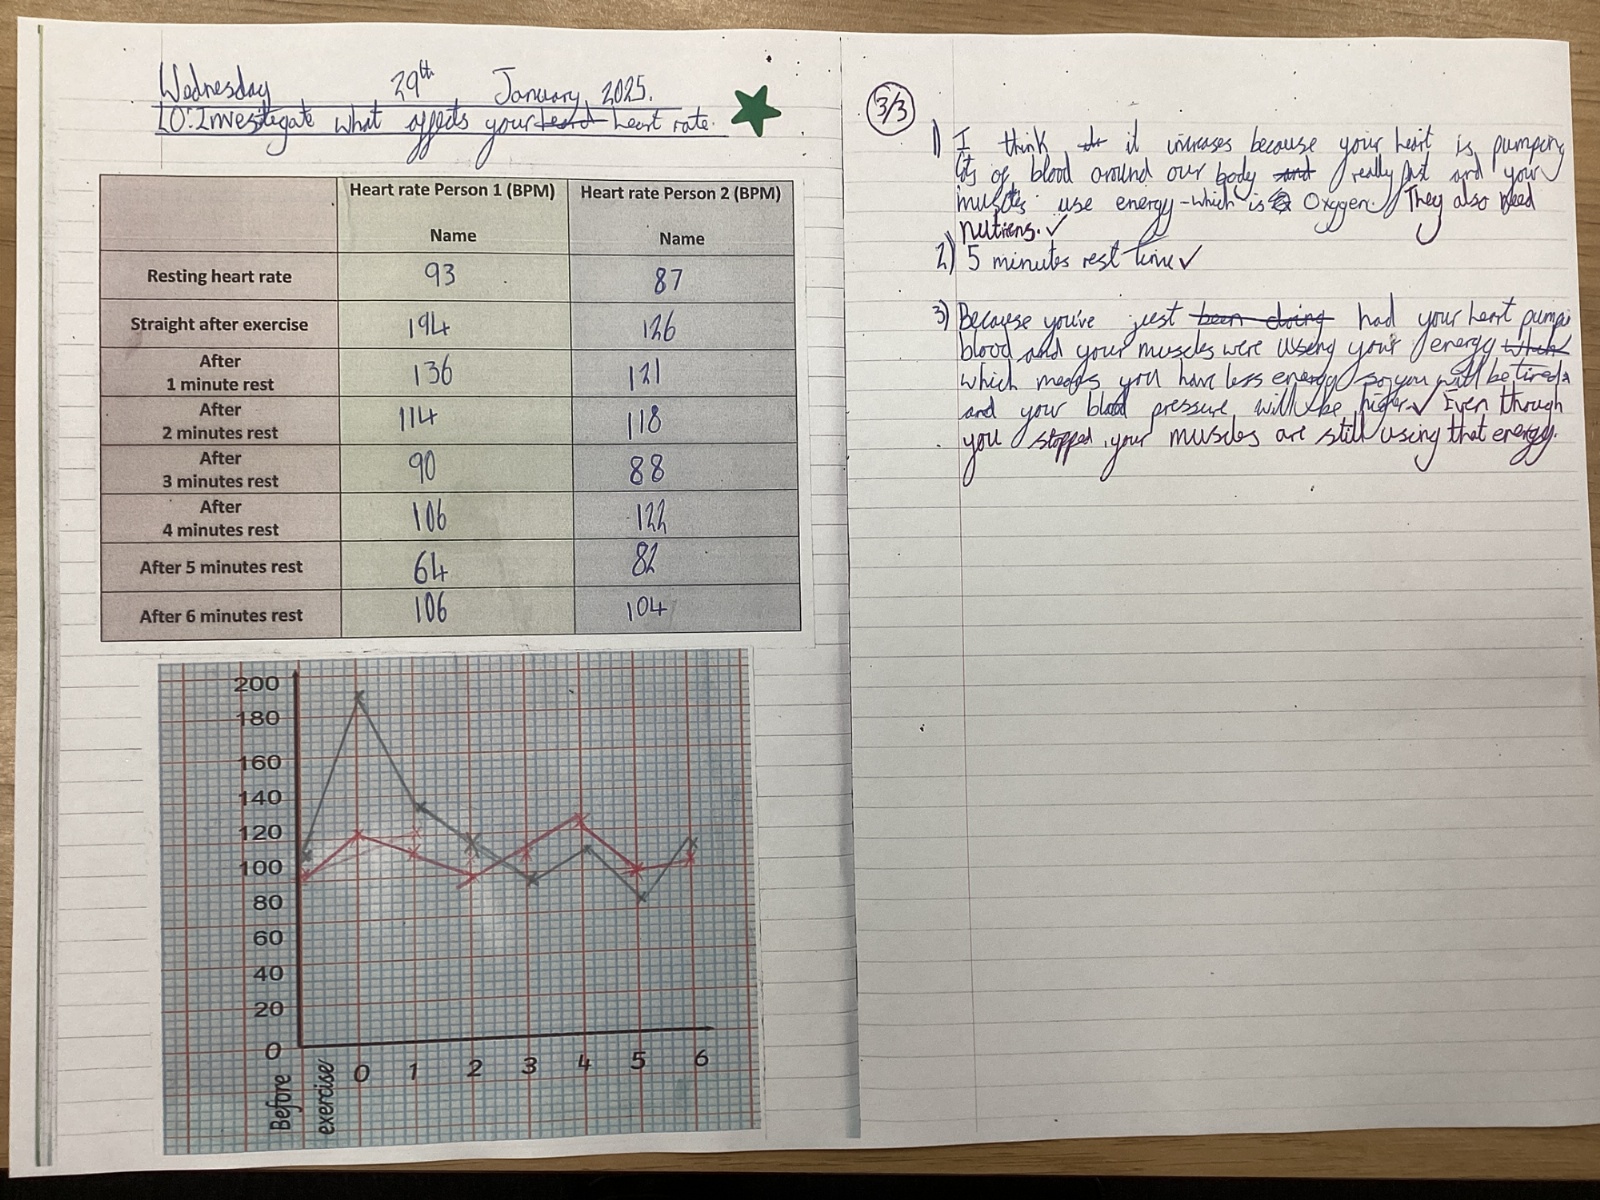 Wednesday 29th January, 2025.
LO: Investigate what affects your heard heart rate.
Heart rate Person 1 (BPM) Heart rate Person 2 (BPM)
Name Name
Resting heart rate 93 87
Straight after exercise 194 126
After
1 minute rest 136 121
After
2 minutes rest 114 118
After
3 minutes rest 90 88
After
4 minutes rest 106 122
After 5 minutes rest 64 82
After 6 minutes rest 106 104
200
180
160
140
120
100
80
60
40
20
0
Before
exercise
0 1 2 3 4 5 6
3/3
1) I think it increases because your heart is pumping
lots of blood around our body and really fast and your
muscles use energy - which is Oxygen. They also need
nutriens. ✓
2) 5 minutes rest time ✓
3) Because you've just been doing had your heart pump
blood and your muscles were using your energy which
which means you have less energy so you will be tired
and your blood pressure will be higher ✓ Even though
you stopped, your muscles are still using that energy.